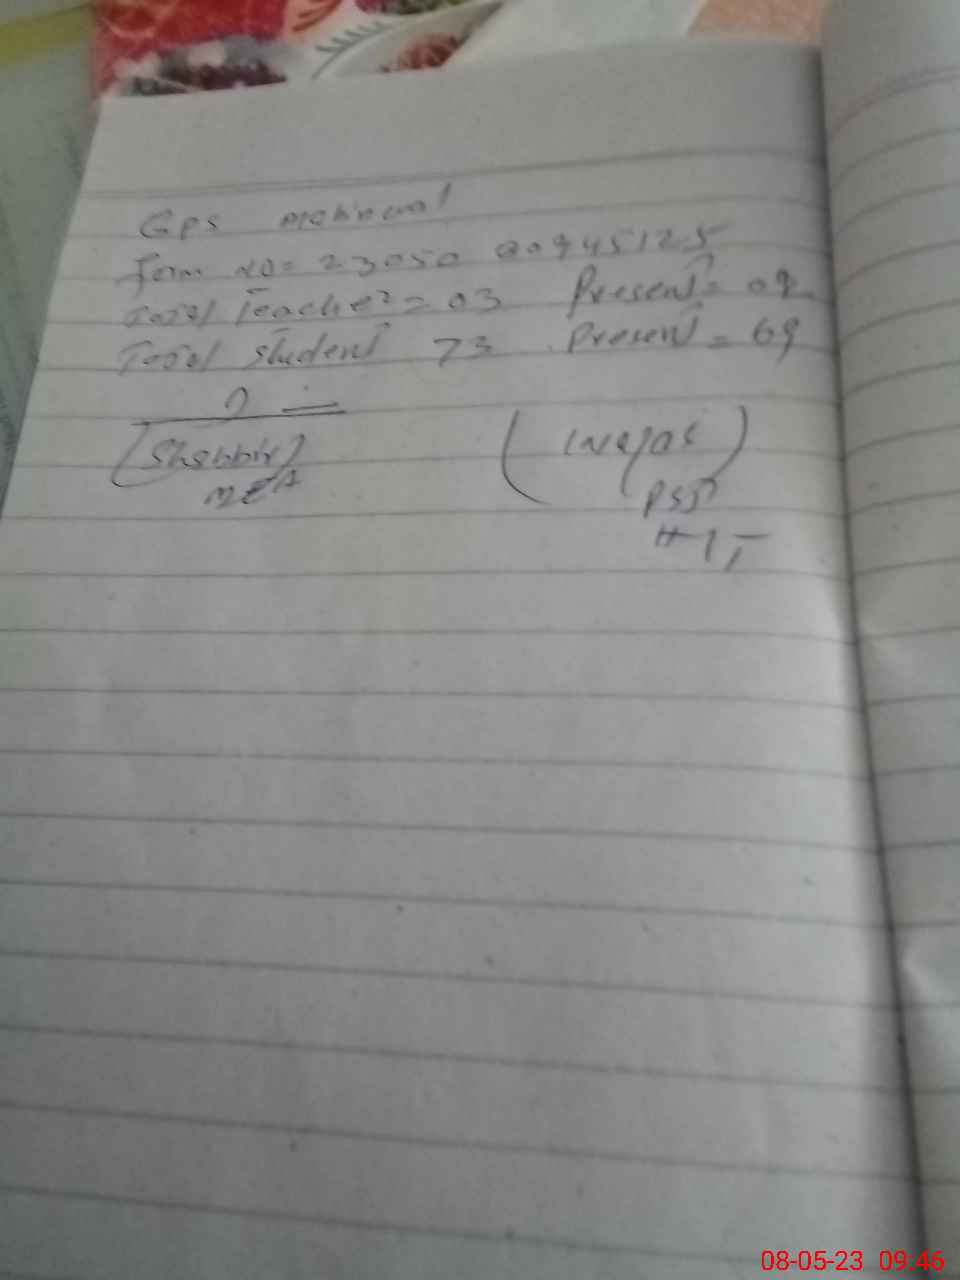 GPS
Form no = 23050 00945125
Total Teacher = 03 Present = 02
Total student 73 Present = 69
(Shabbir)
MEA
PST
08-05-23 09:46